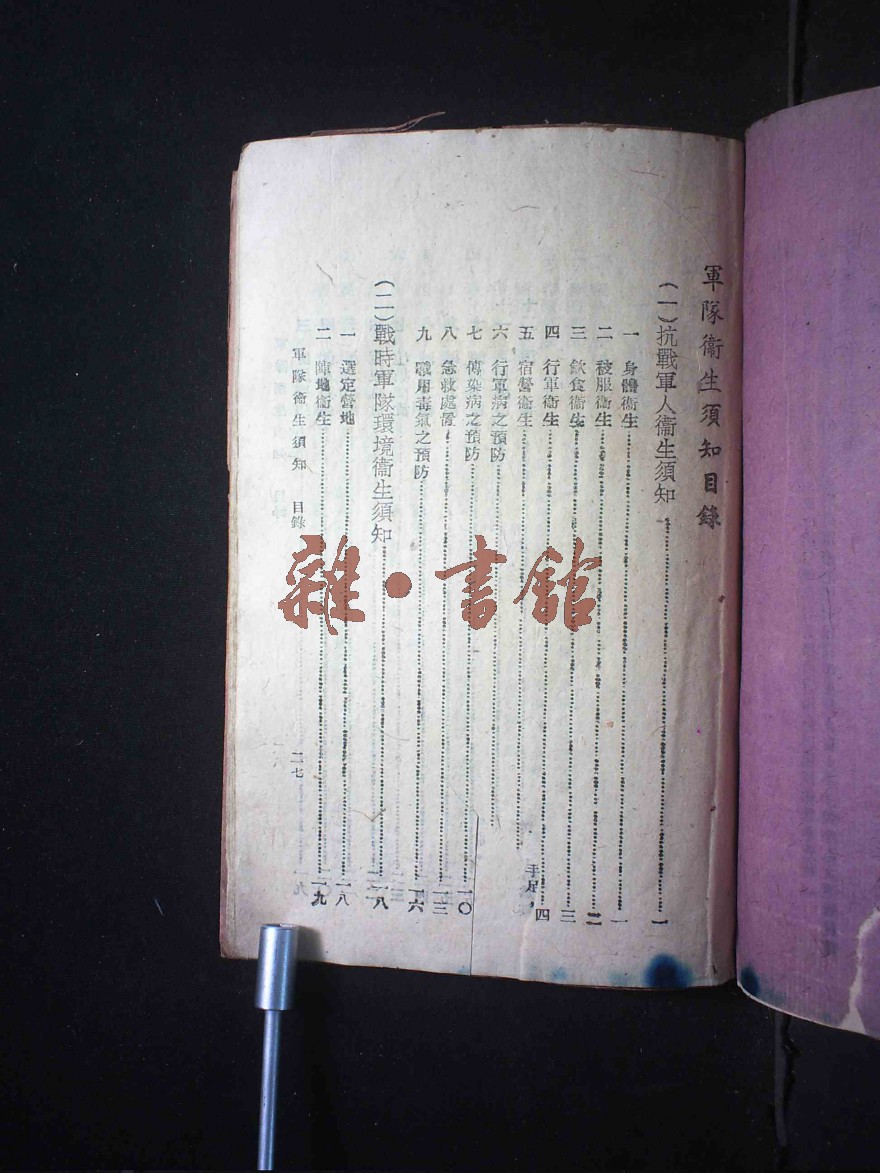 軍隊衞生須知目錄
(一)抗戰軍人衞生須知……一
一 身體衞生……一
二 被服衞生……二
三 飲食衞生……三
四 行軍衞生……四
五 宿營衞生……
六 行軍病之預防……
七 傳染病之預防……一〇
八 急救處置……一三
九 戰用毒氣之預防……一六
(二)戰時軍隊環境衞生須知……一八
一 選定營地……一八
二 陣地衞生……一九
軍隊衞生須知 目錄 二七
雜·書館